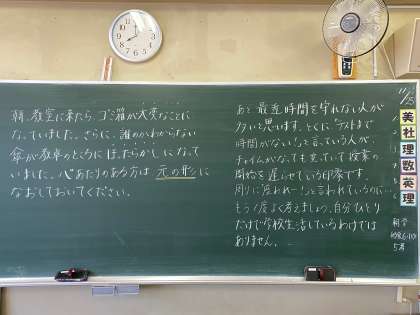 朝、教室に来たら、ゴミ箱が大変なことに
なっていました。さらに、誰のかわからない
傘が教卓のところにほったらかしになって
いました。心あたりのある方は 元の形に
なおしておいてください。
あと 最近 時間を守れない人が
多いと思います。とくに、テストまで
時間がない!と言っている人が、
チャイムがなっても立っていて授業の
開始を遅らせている印象です。
周りに座れー!と言われているのに…
もう1度よく考えましょう。自分ひとり
だけで学校生活しているわけでは
ありません。
11/
美
社
理
数
英
理